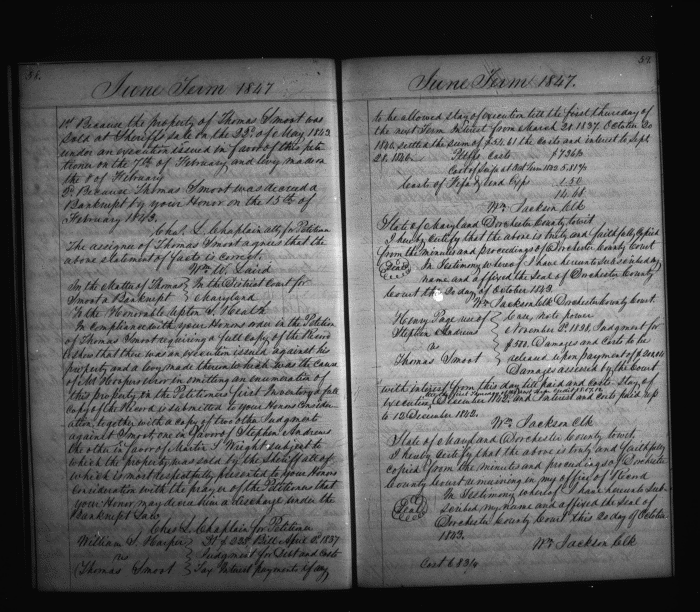 38.
June Term 1847
1st Because the property of Thomas Smoot was
sold at Sheriffs sale on the 22d of May 1843
under an execution issued in favor of this peti
tioner on the 7th of February and levy made on
the 8 of February
2d Because Thomas Smoot was decreed a
Bankrupt by your Honor on the 15th of
February 1843.
Chas. L. Chaplain atty for Petitioner
The assignee of Thomas Smoot agrees that the
above statement of facts is correct.
Wm W. Laird
In the Matter of Thomas } In the District Court for
Smoot a Bankrupt } Maryland
To the Honorable Upton S. Heath
In compliance with your Honors order in the Petition
of Thomas Smoot requiring a full copy of the Record
to show that there was an execution issued against his
property and a levy made thereon which was the cause
of Hoopers error in omitting an enumeration of
this property in the Petitioners first Inventory a full
copy of the Record is submitted to your Honors Consider
ation, together with a copy of two other Judgment
against Smoot, one in favor of Stephen Andrews
the other in favor of Martin L Wright subject to
which the property was sold by the Sheriff all of
which is most respectfully presented to your Honors
consideration with the prayer of the Petitioner that
your Honor may decree him a discharge under the
Bankrupt Law
Chas L. Chaplain for Petitioner
William S. Harper } Bill April 1837
vs } Judgment for Debt and Costs
Thomas Smoot } Tax Interest payments if any
39.
June Term 1847.
to be allowed stay of execution till the first thursday of
the next Term Interest from March 21. 1837. October 20
1842 settle the sum of $ 61 the costs and interest to Sept
21. 1842. Plffs Costs $7.36¾
Cost of 5.81¾
Costs of Fifa & Vend Exps 1.50
14.68
Wm Jackson Clk
State of Maryland Dorchester County to wit
I hereby certify that the above is truly and faithfully Copied
from the minutes and proceedings of Dorchester County Court
Seal In Testimony where of I have hereunto subscribed my
name and affixed the Seal of Dorchester County
Court this 20 day of October 1843.
Wm Jackson Clk Dorchester County Court.
Henry Page use of } Case, note power
Stephen Andrews } November 1121, Judgment for
vs } $500. Damages and Costs to be
Thomas Smoot } released upon payment of
Damages assessed by the Court
with interest from this day till paid and costs. Stay of
execution, December 1842. and Interest and costs paid up
to 12 December 1842.
Wm Jackson Clk
State of Maryland Dorchester County to wit,
I hereby certify that the above is truly and faithfully
copied from the minutes and proceedings of Dorchester
County Court remaining in my office of Record
Seal In Testimony whereof I have hereunto sub-
scribed my name and affixed the Seal of
Dorchester County Court this 20 day of October
1843.
Wm Jackson Clk
Cost 6.83¼